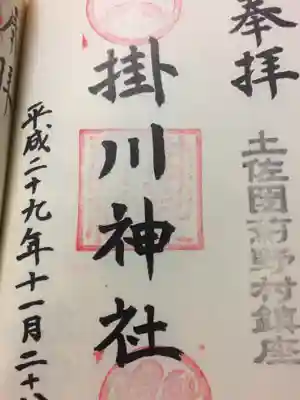 奉拝
土佐国薊野村鎮座
掛川神社
平成二十九年十一月二十